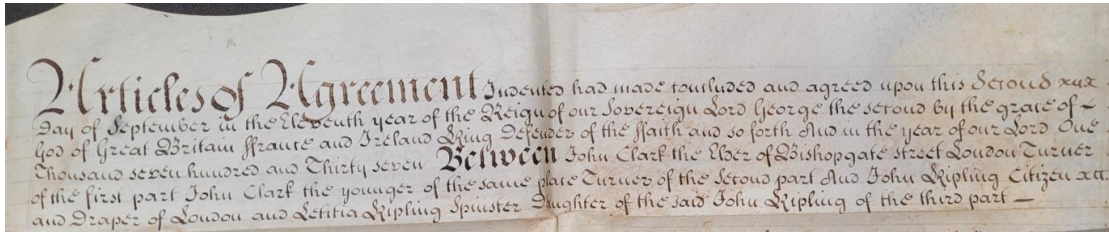 Articles of Agreement Indented had made concluded and agreed upon this Second
day of September in the Eleventh year of the Reign of our Sovereign Lord George the second by the grace of
God of Great Britain ffrance and Ireland King Defender of the ffaith and so forth And in the year of our Lord One
Thousand seven hundred and Thirty seven Between John Clark the Elder of Bishopgate street London Turner
of the first part John Clark the younger of the same place Turner of the Second part And John Ripling Citizen
and Draper of London and Letitia Ripling Spinster Daughter of the said John Ripling of the third part —